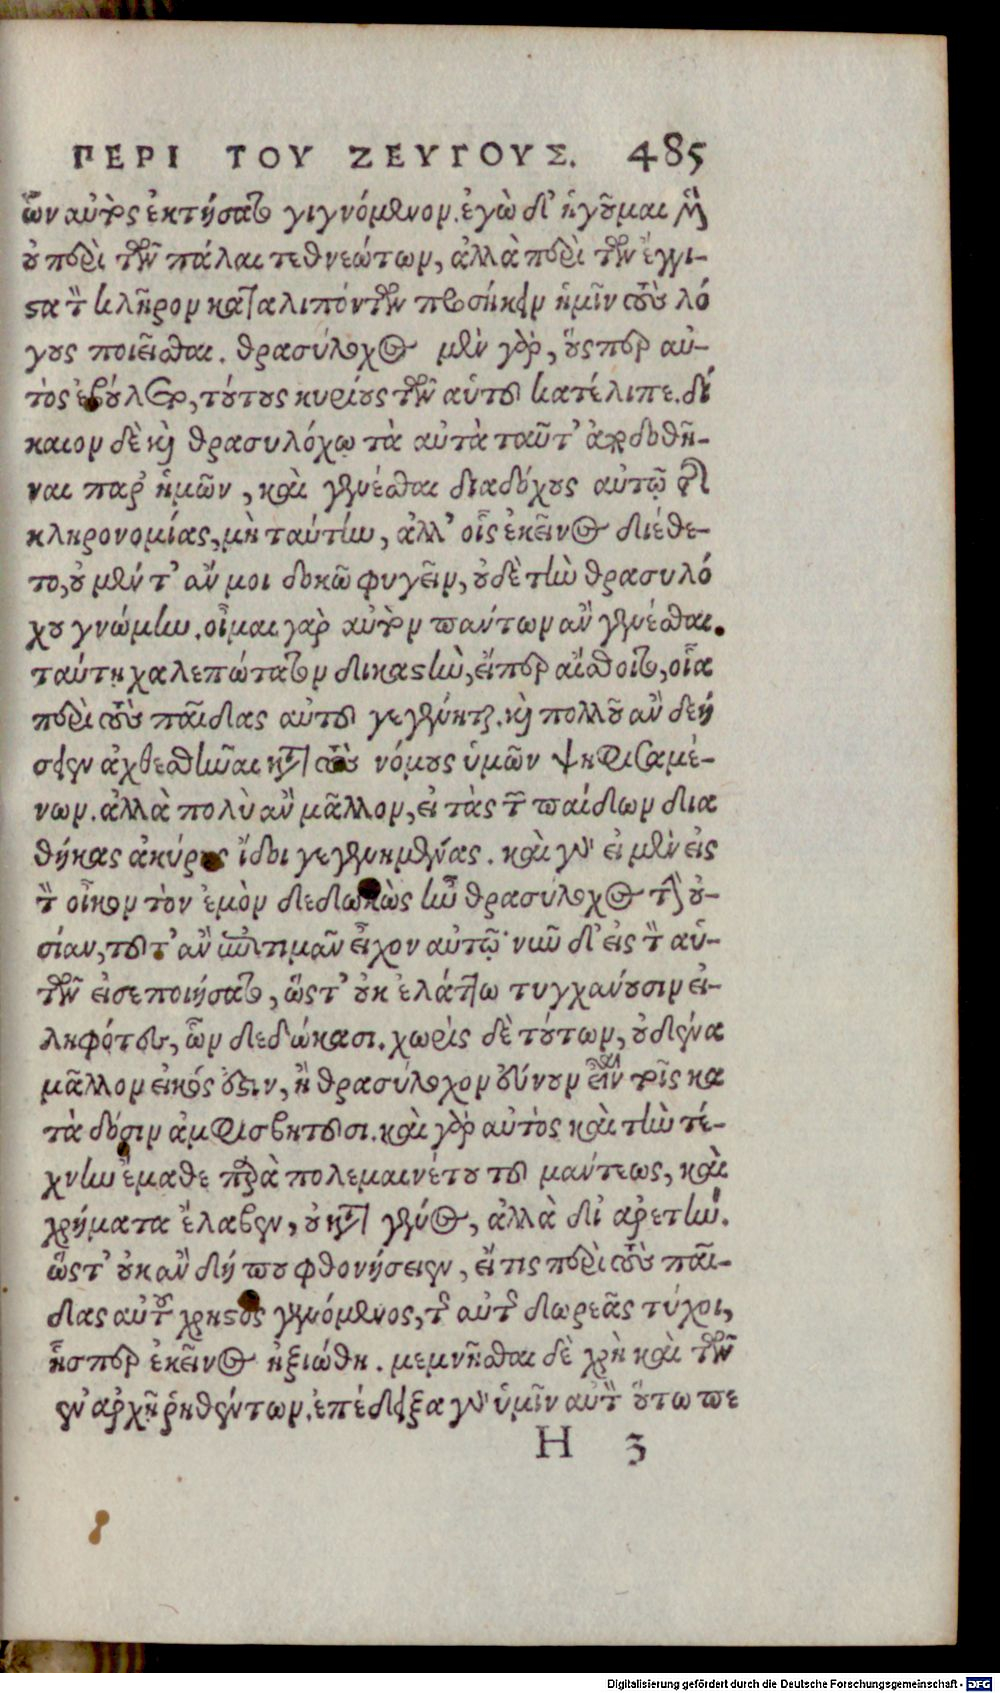 ΠΕΡΙ ΤΟΥ ΖΕΥΓΟΥΣ. 485
ὧν αὐτὸς ἐκτήσατο γιγνόμενον. ἐγὼ δ' ἡγοῦμαι μὲν
οὐ περὶ τῶν πάλαι τεθνεώτων, ἀλλὰ περὶ τῶν ἔγγι-
στα τὸν κλῆρον καταλιπόντων προσήκειν ἡμῖν τοὺς λό
γους ποιεῖσθαι. θρασύλοχος μὲν γὰρ, οὕσπερ αὐ-
τὸς ἐβούλετο, τούτους κυρίους τῶν αὑτοῦ κατέλιπε. δί
καιον δὲ καὶ θρασυλόχῳ τὰ αὐτὰ ταῦτ' ἀποδοθῆ-
ναι παρ' ἡμῶν, καὶ γενέσθαι διαδόχους αὐτῷ τῆς
κληρονομίας, μὴ ταύτην, ἀλλ' οἷς ἐκεῖνος διέθε-
το, οὐ μέν τ' ἄν μοι δοκῶ φυγεῖν, οὐδὲ τὴν θρασυλό
χου γνώμην. οἶμαι γὰρ αὐτὸν πάντων ἂν γενέσθαι
ταύτῃ χαλεπώτατον δικαστὴν, εἴπερ αἴσθοιτο, οἷα
περὶ τοὺς παῖδας αὐτοῦ γεγένηται. καὶ πολλοῦ ἂν δεή
σειεν ἀχθεσθῆναι κατὰ τοὺς νόμους ὑμῶν ψηφισαμέ-
νων. ἀλλὰ πολὺ ἂν μᾶλλον, εἰ τὰς τῶν παίδων δια
θήκας ἀκύρους ἴδοι γεγενημένας. καὶ γὰρ εἰ μὲν εἰς
τὸν οἶκον τὸν ἐμὸν δεδωκὼς ἦν θρασύλοχος τὴν οὐ-
σίαν, τοῦτ' ἂν ἐπιτιμᾶν εἶχον αὐτῷ· νῦν δ' εἰς τὸν αὑ-
τῶν εἰσεποιήσατο, ὥστ' οὐκ ἐλάττω τυγχάνουσιν εἰ-
ληφότες, ὧν δεδώκασι. χωρὶς δὲ τούτων, οὐδένα
μᾶλλον εἰκός ἐστιν, ἢ θρασύλοχον εὔνουν εἶναι τοῖς κα
τὰ δόσιν ἀμφισβητοῦσι. καὶ γὰρ αὐτὸς καὶ τὴν τέ-
χνην ἔμαθε παρὰ πολεμαινέτου τοῦ μάντεως, καὶ
χρήματα ἔλαβεν, οὐ κατὰ γένος, ἀλλὰ δι' ἀρετὴν.
ὥστ' οὐκ ἂν δή που φθονήσειεν, εἴ τις περὶ τοὺς παῖ-
δας αὐτοῦ χρηστὸς γενόμενος, τῆς αὐτῆς δωρεᾶς τύχοι,
ἧσπερ ἐκεῖνος ἠξιώθη. μεμνῆσθαι δὲ χρὴ καὶ τῶν
ἐν ἀρχῇ ῥηθέντων. ἐπέδειξα γὰρ ὑμῖν αὐτὸν οὕτω πε
H 3
Digitalisierung gefördert durch die Deutsche Forschungsgemeinschaft - DFG